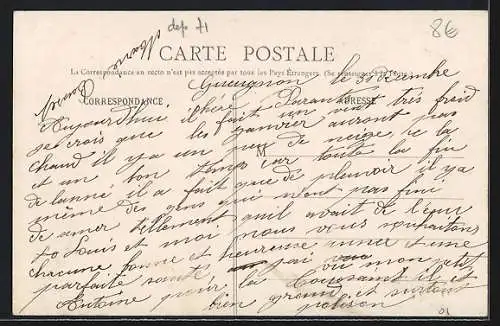 dep 71
8€
CARTE POSTALE
La Correspondance au recto n'est pas acceptée par tous les Pays Étrangers. (Se renseigner à la Poste)
Gueugnon le 30 décembre
CORRESPONDANCE ADRESSE
Aujourd'hui chère il fait un vent très froid
je crois que les janvier auront pas
chaud il y a un peu de neige, ce la
M
et un bon temps car toute la fin
de l'année il a fait que de pleuvoir il y a
même des gens que n'ont pas fini
de semer tellement qu'il avait de l'eau
Louis et moi nous vous souhaitons
chacune bonne et heureuse année et une
parfaite santé j'ai vu mon petit
Antoine pour la il est
bien grand et surtout
polisson